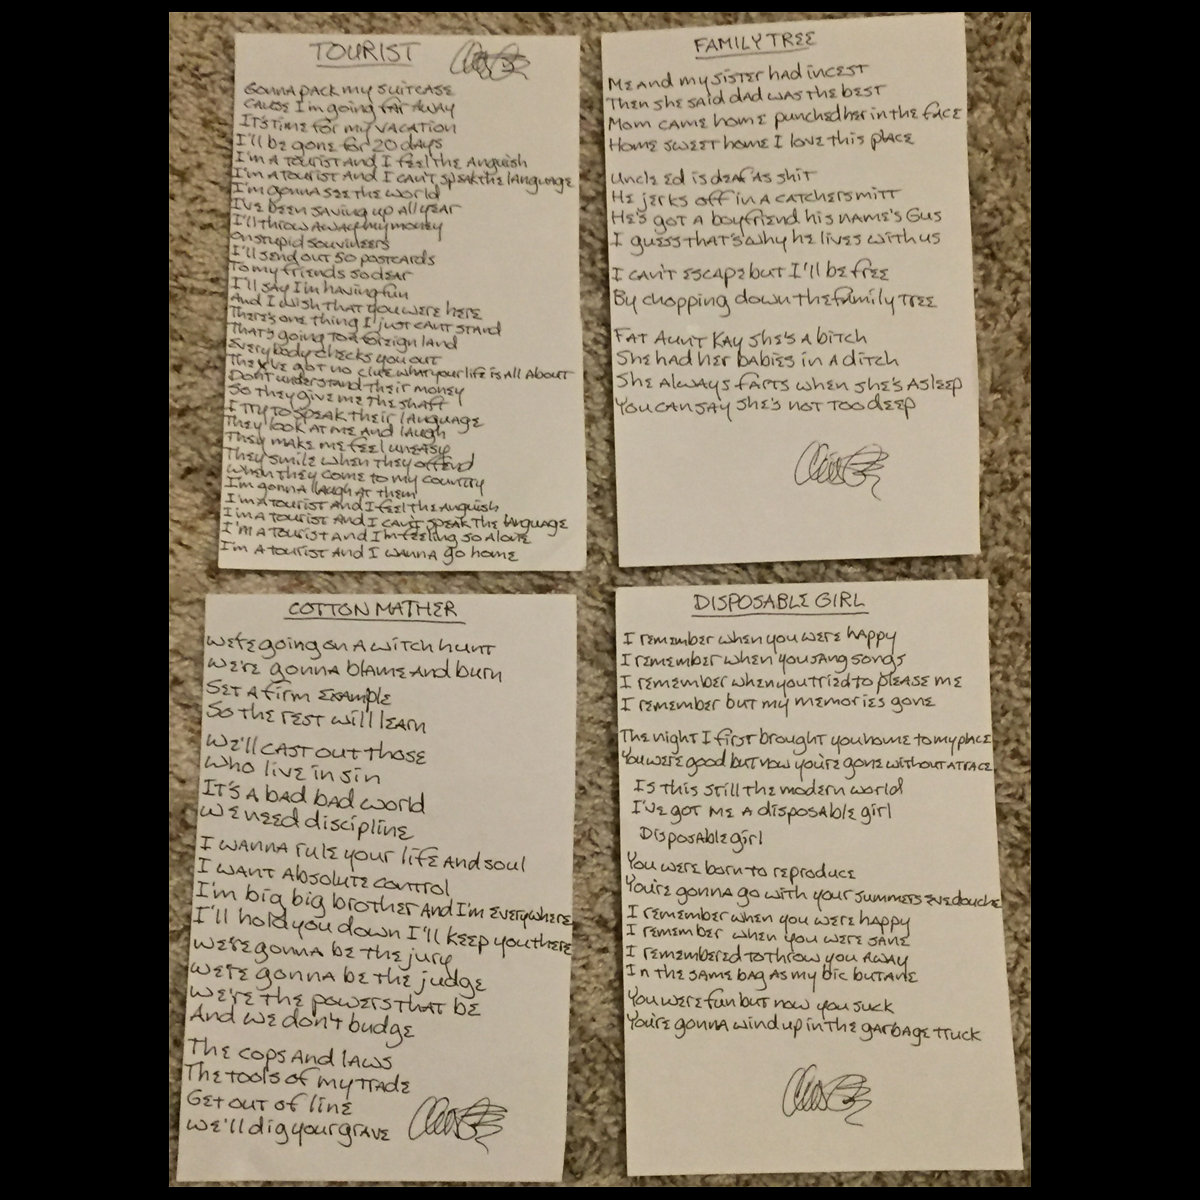 TOURIST
Gonna pack my suitcase
Cause I'm going far away
It's time for my vacation
I'll be gone for 20 days
I'm a tourist and I feel the anguish
I'm a tourist and I can't speak the language
I'm gonna see the world
I've been saving up all year
I'll throw away my money
On stupid souvineers
I'll send out 50 postcards
To my friends so dear
I'll say I'm having fun
And I wish that you were here
There's one thing I just cant stand
That's going to a foreign land
Everybody checks you out
They've got no clue what your life is all about
Don't understand their money
So they give me the shaft
I try to speak their language
They look at me and laugh
They make me feel uneasy
They smile when they offend
When they come to my country
I'm gonna laugh at them
I'm a tourist and I feel the anguish
I'm a tourist and I can't speak the language
I'm a tourist and I'm feeling so alone
I'm a tourist and I wanna go home
FAMILY TREE
Me and my sister had incest
Then she said dad was the best
Mom came home punched her in the face
Home sweet home I love this place
Uncle Ed is deaf as shit
He jerks off in a catchers mitt
He's got a boyfriend his name's Gus
I guess that's why he lives with us
I can't escape but I'll be free
By chopping down the family tree
Fat Aunt Kay she's a bitch
She had her babies in a ditch
She always farts when she's asleep
You can say she's not too deep
COTTON MATHER
We're going on a witch hunt
We're gonna blame and burn
Set a firm example
So the rest will learn
We'll cast out those
Who live in sin
It's a bad bad world
We need discipline
I wanna rule your life and soul
I want absolute control
I'm big big brother and I'm everywhere
I'll hold you down I'll keep you there
We're gonna be the jury
We're gonna be the judge
We're the powers that be
And we don't budge
The cops and laws
The tools of my trade
Get out of line
We'll dig your grave
DISPOSABLE GIRL
I remember when you were happy
I remember when you sang songs
I remember when you tried to please me
I remember but my memories gone
The night I first brought you home to my place
You were good but now you're gone without a trace
Is this still the modern world
I've got me a disposable girl
Disposable girl
You were born to reproduce
You're gonna go with your summers eve douche
I remember when you were happy
I remember when you were sane
I remembered to throw you away
In the same bag as my bic butane
You were fun but now you suck
You're gonna wind up in the garbage truck